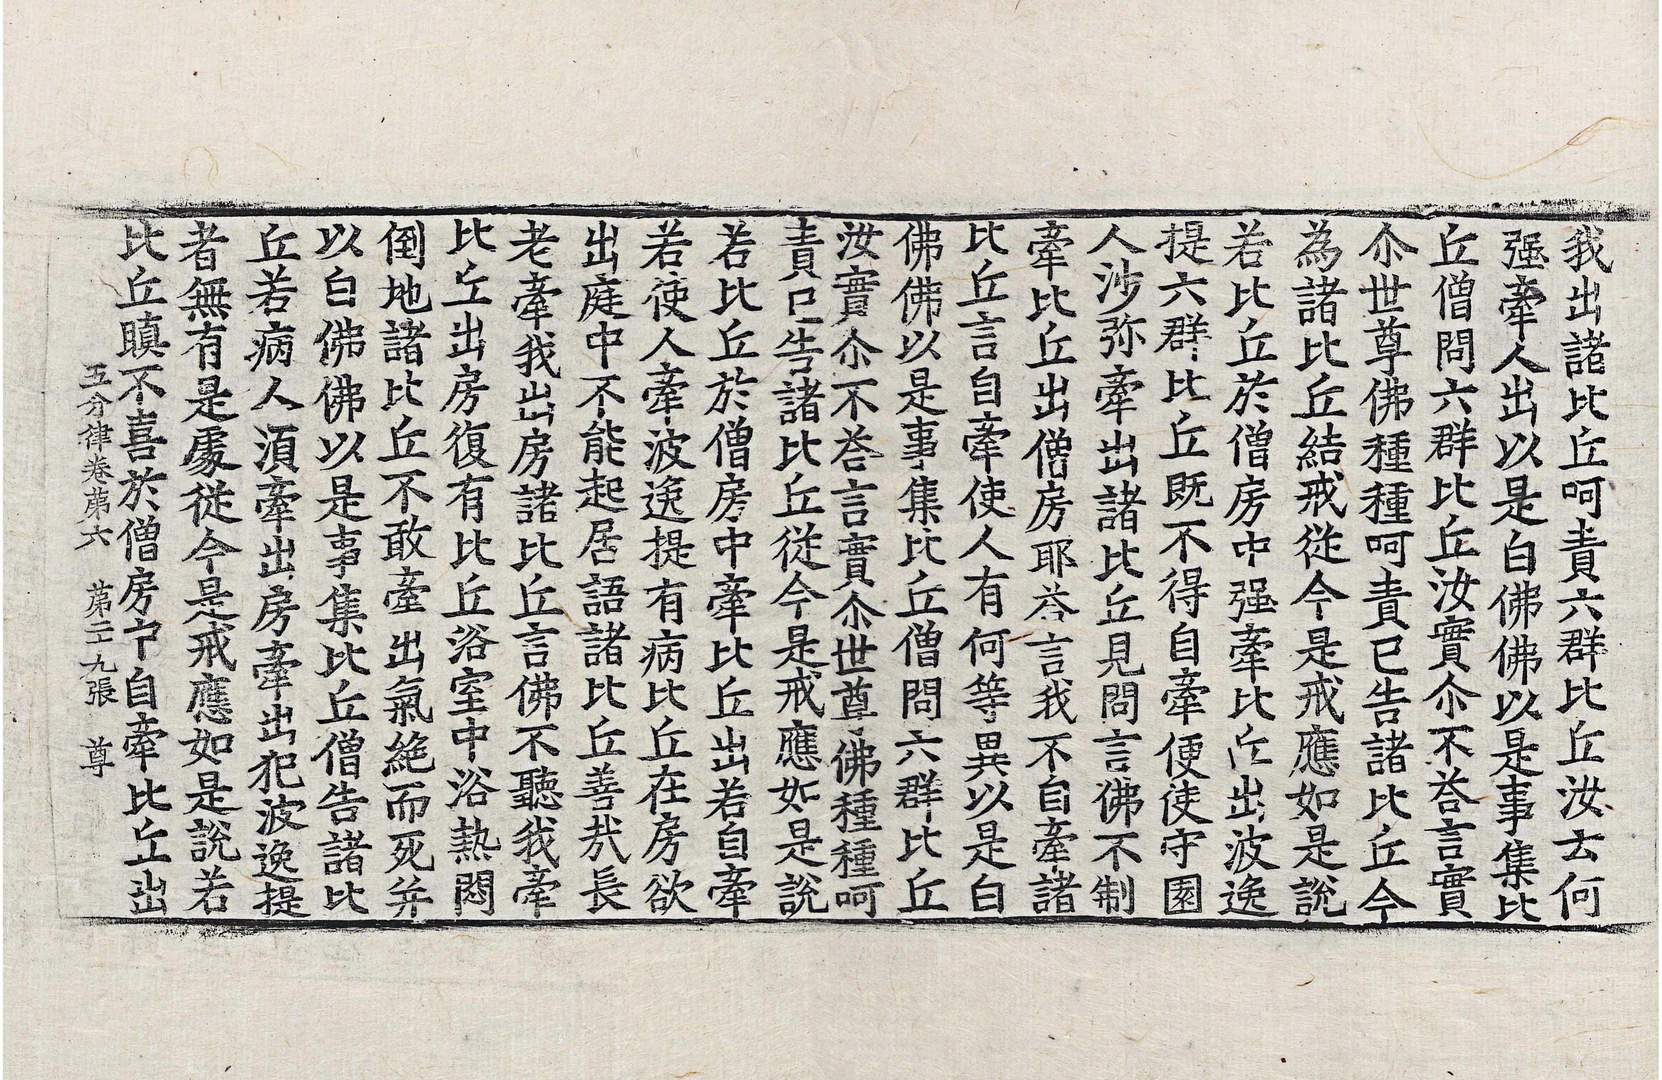 我出諸比丘呵責六群比丘汝去何
强牽人出以是白佛佛以是事集比
丘僧問六群比丘汝實尒不荅言實
尒世尊佛種種呵責已告諸比丘今
為諸比丘結戒從今是戒應如是說
若比丘於僧房中强牽比丘出波逸
提六群比丘既不得自牽便使守園
人沙弥牽出諸比丘見問言佛不制
牽比丘出僧房耶荅言我不自牽諸
比丘言自牽使人有何等異以是白
佛佛以是事集比丘僧問六群比丘
汝實尒不荅言實尒世尊佛種種呵
責已告諸比丘從今是戒應如是說
若比丘於僧房中牽比丘出若自牽
若使人牽波逸提有病比丘在房欲
出庭中不能起居語諸比丘善㢤長
老牽我出房諸比丘言佛不聽我牽
比丘出房復有比丘浴室中浴熱悶
倒地諸比丘不敢牽出氣絶而死并
以白佛佛以是事集比丘僧告諸比
丘若病人湏牽出房牽出犯波逸提
者無有是處從今是戒應如是說若
比丘瞋不喜於僧房中自牽比丘出
五分律卷第六 第二十九張 尊